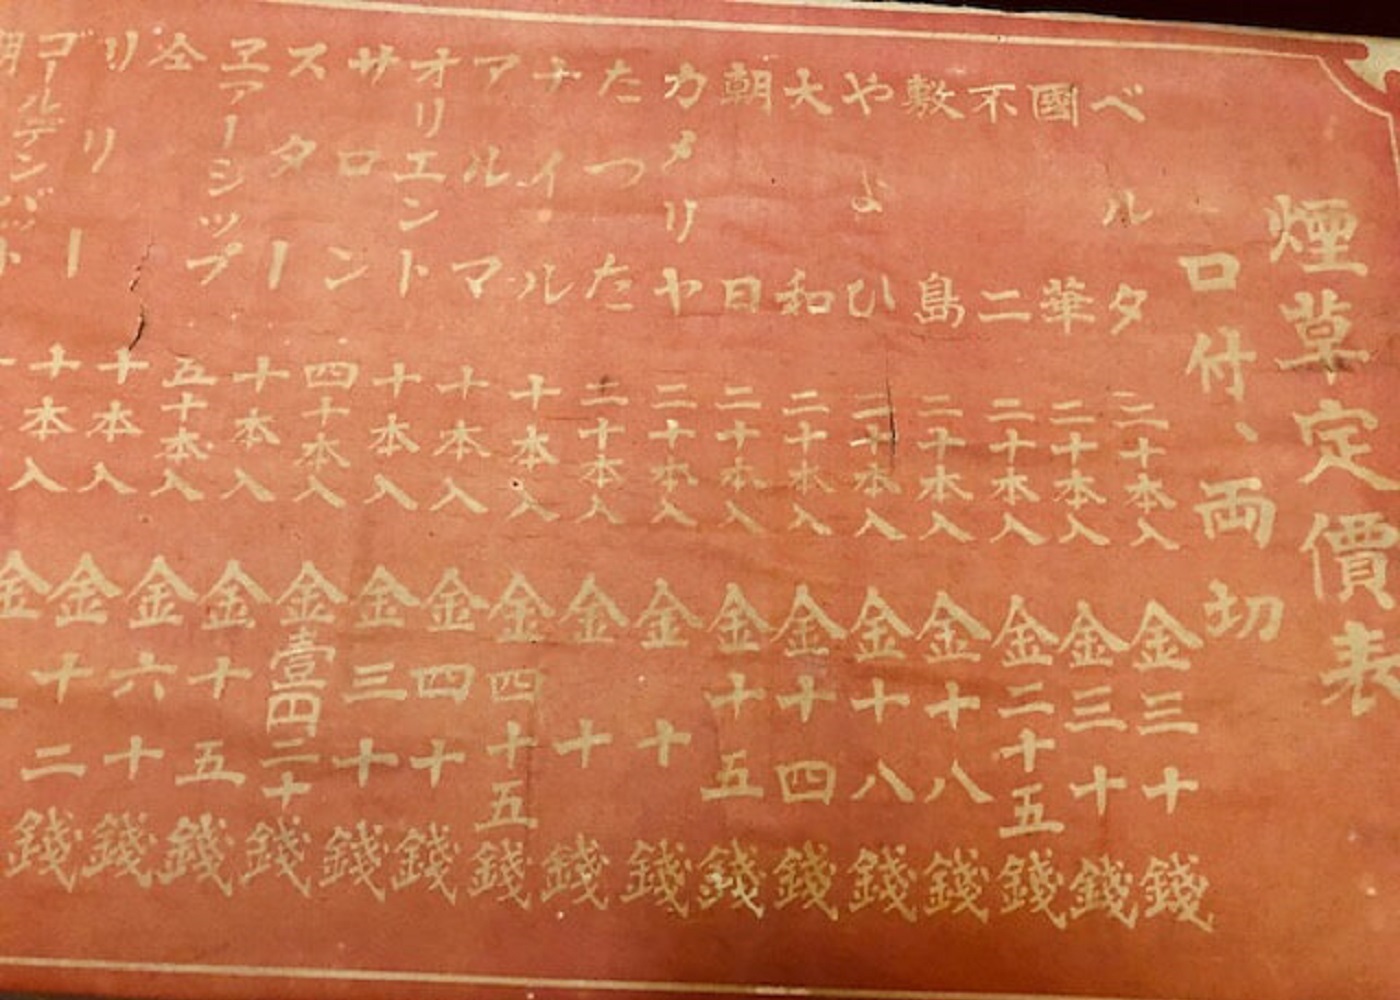 煙草定價表
口付、両切
ベルタ 二十本入 金三十錢
國華 二十本入 金三十錢
不二 二十本入 金二十五錢
敷島 二十本入 金十八錢
やよひ 二十本入 金十八錢
大和 二十本入 金十四錢
朝日 二十本入 金十五錢
カメリヤ 二十本入 金十錢
たつた 二十本入 金十錢
チイル 十本入 金四十五錢
アルマ 十本入 金四十錢
オリエント 十本入 金三十錢
サロン 四十本入 金壹円二十錢
スター 十本入 金十五錢
ヱアーシップ 五十本入 金六十錢
仝 十本入 金十二錢
リリー 十本入 金
ゴールデンバット 十